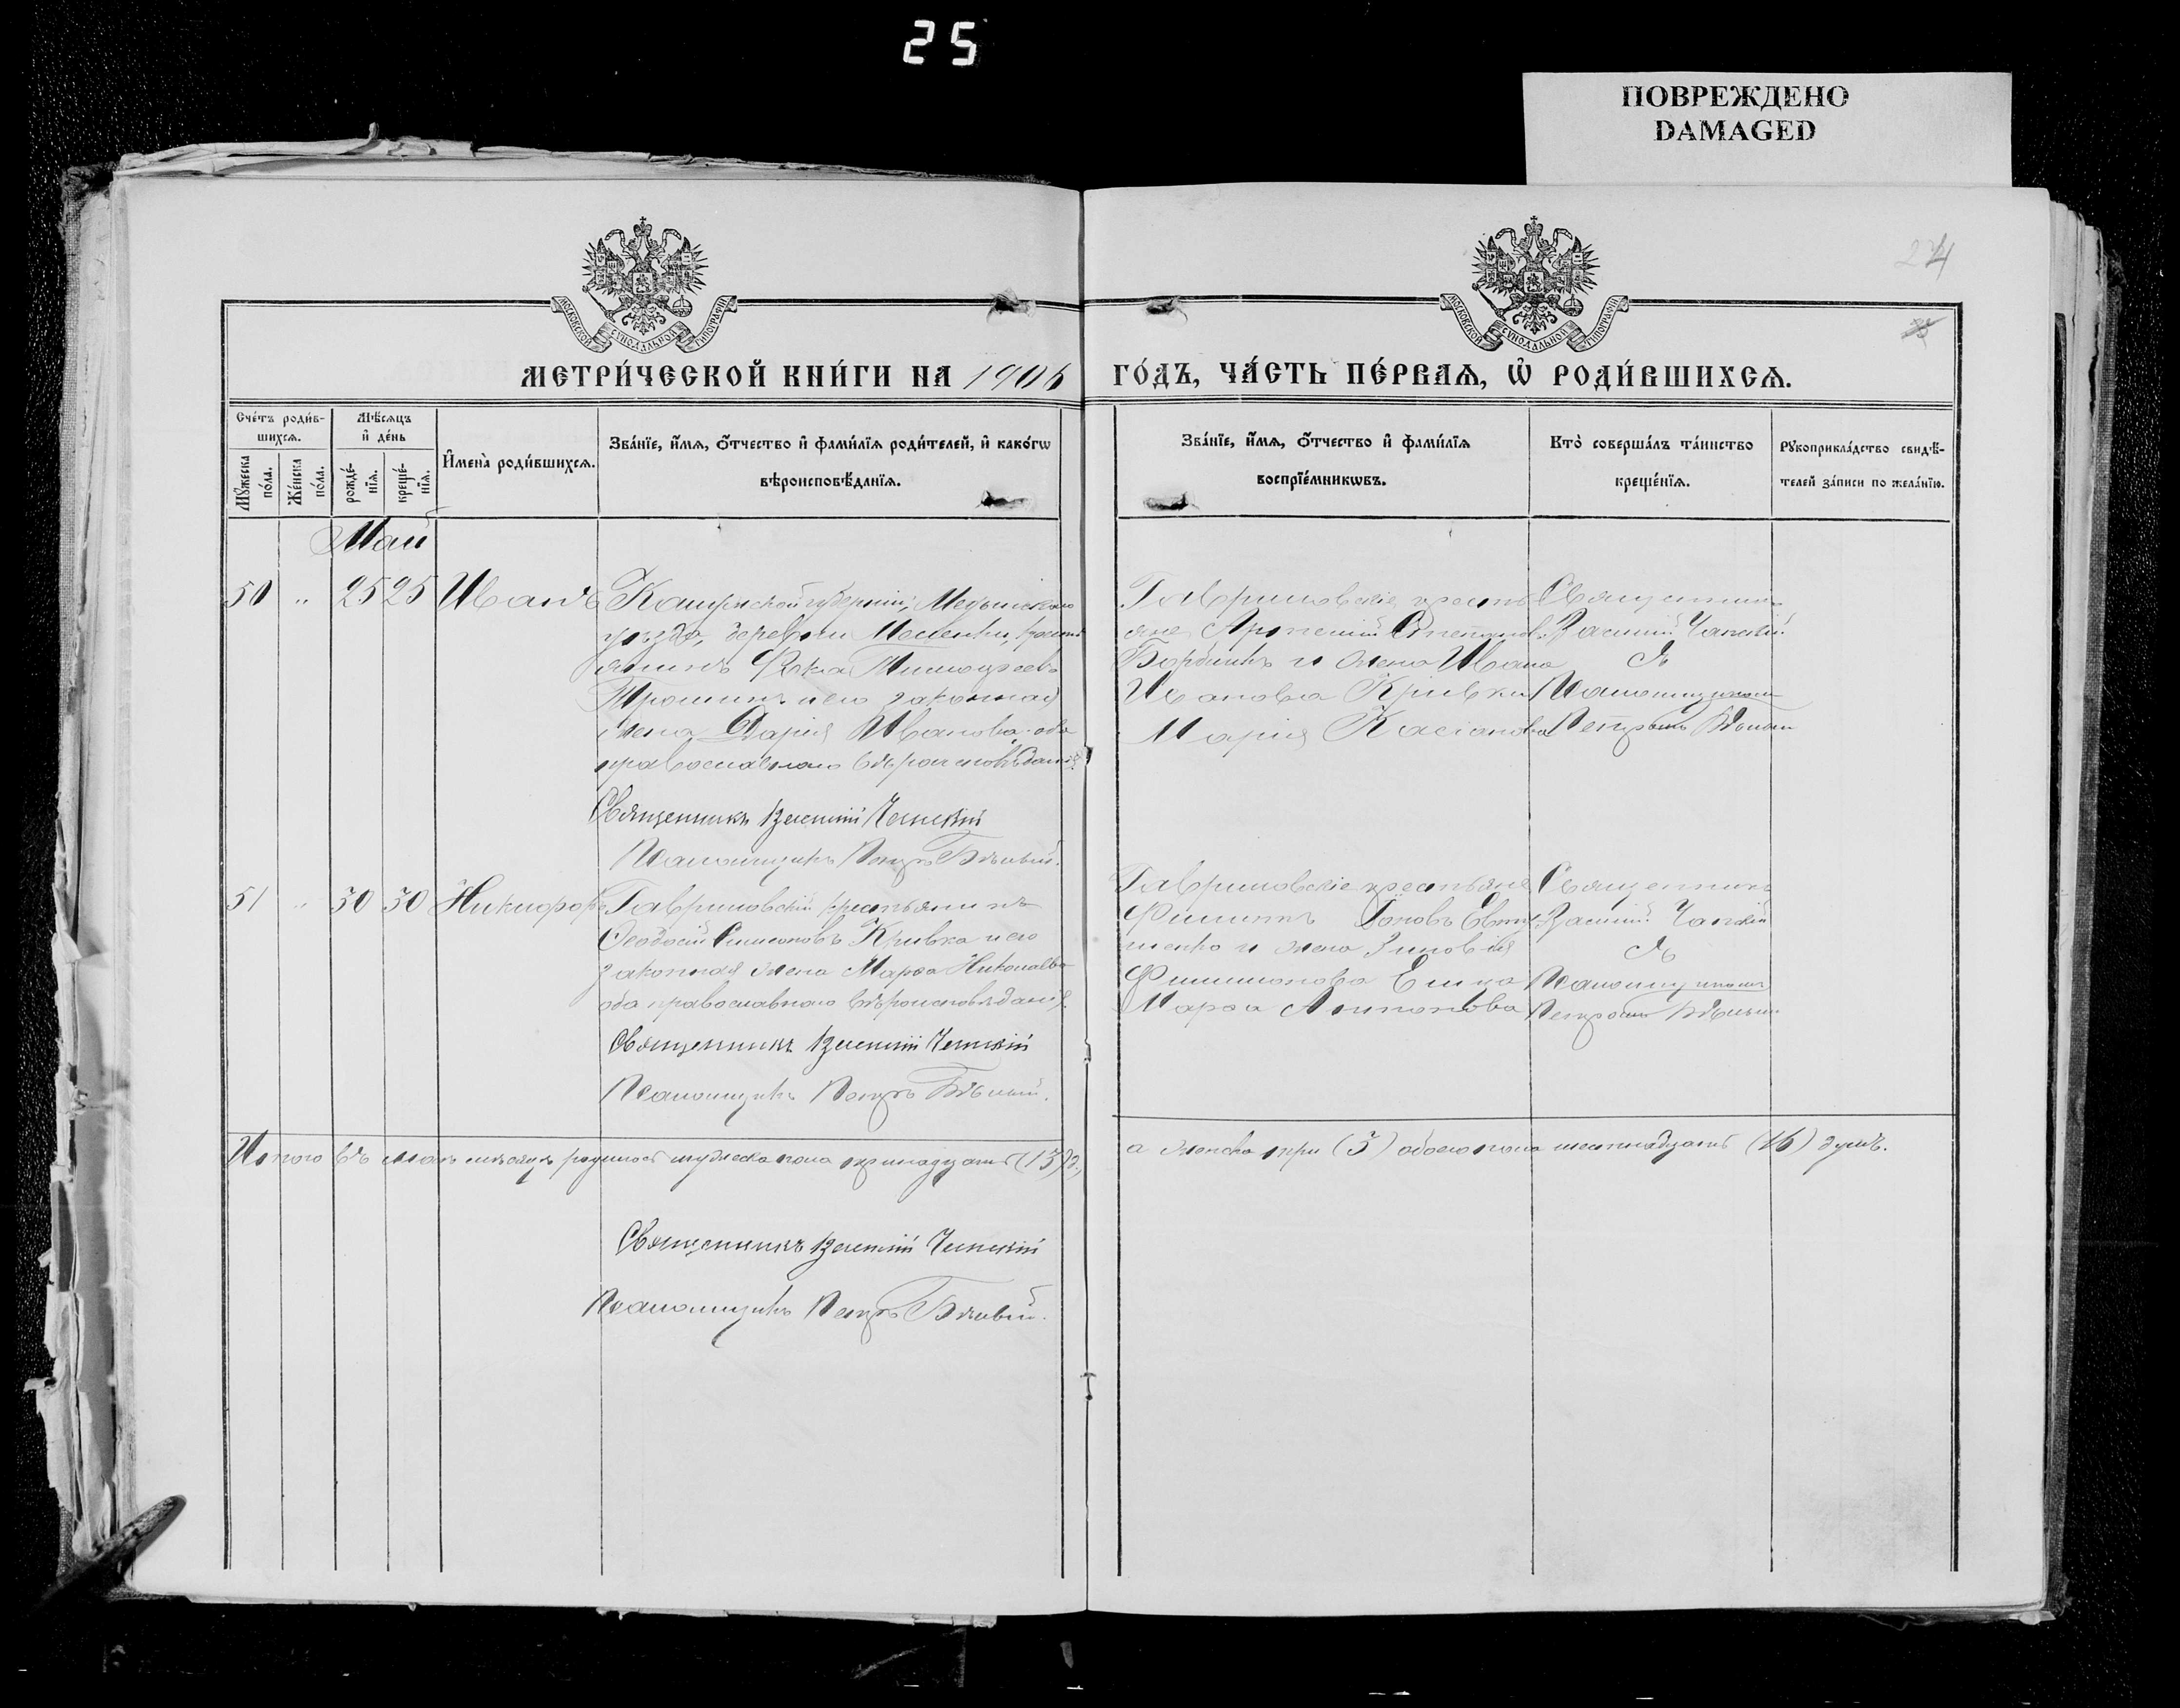 25
ПОВРЕЖДЕНО
DAMAGED
24
МОСКОВСКОЙ СѴНОДАЛЬНОЙ ТИПОГРАФІИ
МОСКОВСКОЙ СѴНОДАЛЬНОЙ ТИПОГРАФІИ
МЕТРИ́ЧЕСКОЙ КНИ́ГИ НА 1906
ГО́ДЪ, ЧА́СТЬ ПЕ́РВАѦ, Ѡ҆ РОДИ́ВШИХСѦ.
Сче́тъ роди́в-
шихсѧ.
Мѣ́сѧцъ
и҆ де́нь
Мꙋ́жеска
по́ла.
Же́нска
по́ла.
рожде́-
нїѧ.
креще́-
нїѧ.
И҆мена̀ роди́вшихсѧ.
Зва́нїе, и҆́мѧ, ѻ҆́тчество и҆ фами́лїѧ роди́телей, и҆ како́гѡ
вѣроисповѣ́данїѧ.
Зва́нїе, и҆́мѧ, ѻ҆́тчество и҆ фами́лїѧ
воспрїе́мникѡвъ.
Кто̀ соверша́лъ та́инство
креще́нїѧ.
Рꙋкоприкла́дство свидѣ́-
телей за́писи по жела́нїю.
Май
50 " 25 25 Иванъ
Калужской губерніи, Медынскаго
уѣзда, деревни крестья
янинъ Фока Тимоѳеевъ
Трошинъ и его законная
жена Дарія Иванова оба
православнаго вѣроисповѣданія
Священникъ Василій Чапскій
Псаломщикъ Петръ Бѣлый.
Гавриловскіе крестья
яне Арсеній Степановъ
Бардикъ и жена Ивана
Иванова Кривки
Марія Касіанова
Священник
Василій Чапскій
съ
Псаломщикомъ
Петромъ Бѣлымъ
51 " 30 30 Никифоръ
Гавриловскій крестьянинъ
Ѳеодосій Симеоновъ Кривка и его
законная жена Марѳа Николаева
оба православнаго вѣроисповѣданія.
Священникъ Василій Чапскій
Псаломщикъ Петръ Бѣлый.
Гавриловскіе крестьяне
Филиппъ Іоновъ Евту
шенко и жена Зиновія
Филимонова
Марѳа Антонова
Священникъ
Василій Чапскій
съ
Псаломщикомъ
Петромъ Бѣлымъ
Итого въ маѣ мѣсяцѣ родилось мужеска пола тринадцать (13) д.,
а женска три (3) обоего пола шестнадцать (16) душъ.
Священникъ Василій Чапскій
Псаломщикъ Петръ Бѣлый.